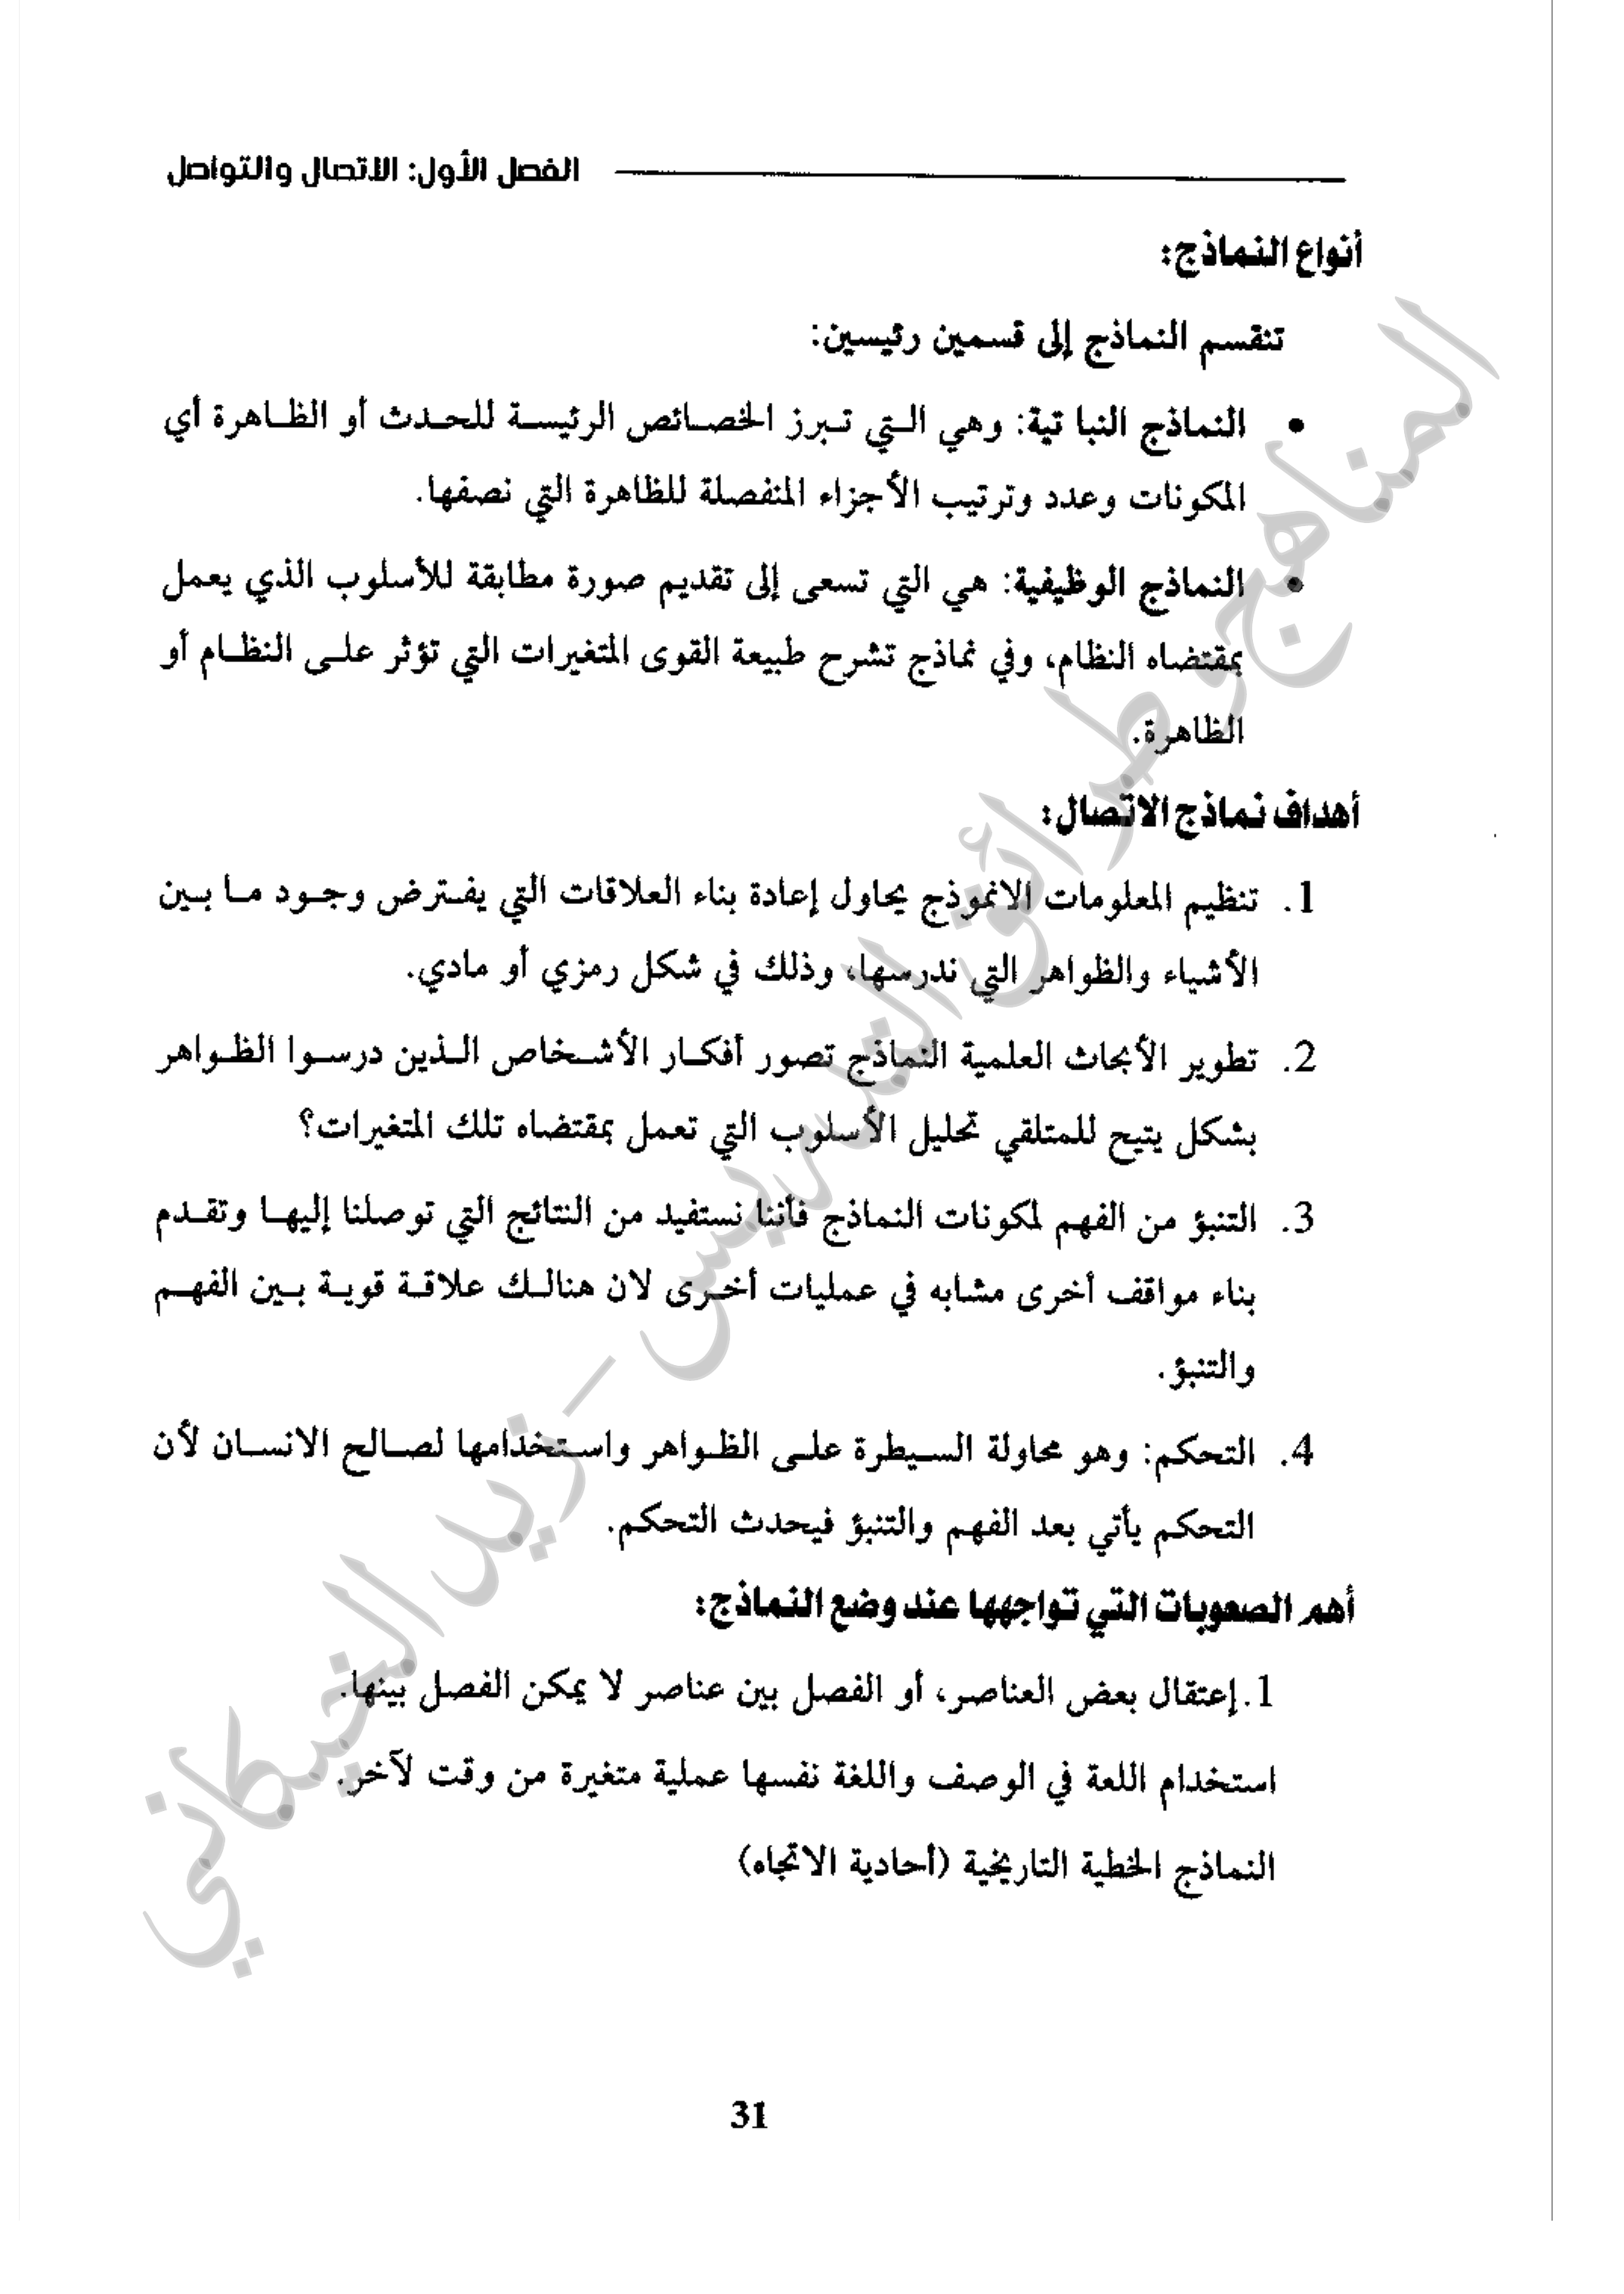 الفصل الأول: الاتصال والتواصل
أنواع النماذج:
تنقسم النماذج إلى قسمين رئيسين:
• النماذج النبا تية: وهي التي تبرز الخصائص الرئيسة للحدث أو الظاهرة أي
المكونات وعدد وترتيب الأجزاء المنفصلة للظاهرة التي نصفها.
• النماذج الوظيفية: هي التي تسعى إلى تقديم صورة مطابقة للأسلوب الذي يعمل
بمقتضاه النظام، وفي نماذج تشرح طبيعة القوى المتغيرات التي تؤثر على النظام أو
الظاهرة.
أهداف نماذج الاتصال:
1. تنظيم المعلومات الانموذج يحاول إعادة بناء العلاقات التي يفترض وجود ما بين
الأشياء والظواهر التي ندرسها، وذلك في شكل رمزي أو مادي.
2. تطوير الأبحاث العلمية النماذج تصور أفكار الأشخاص الذين درسوا الظواهر
بشكل يتيح للمتلقي تحليل الأسلوب التي تعمل بمقتضاه تلك المتغيرات؟
3. التنبؤ من الفهم لمكونات النماذج فأننا نستفيد من النتائج التي توصلنا إليها وتقدم
بناء مواقف أخرى مشابه في عمليات أخرى لان هنالك علاقة قوية بين الفهم
والتنبؤ.
4. التحكم: وهو محاولة السيطرة على الظواهر واستخدامها لصالح الانسان لأن
التحكم يأتي بعد الفهم والتنبؤ فيحدث التحكم.
أهم الصعوبات التي تواجهها عند وضع النماذج:
1.إعتقال بعض العناصر، أو الفصل بين عناصر لا يمكن الفصل بينها.
استخدام اللعة في الوصف واللغة نفسها عملية متغيرة من وقت لآخر.
النماذج الخطية التاريخية (أحادية الاتجاه)
31
المناهج وطرائق التدريس - زيد الخيكاني